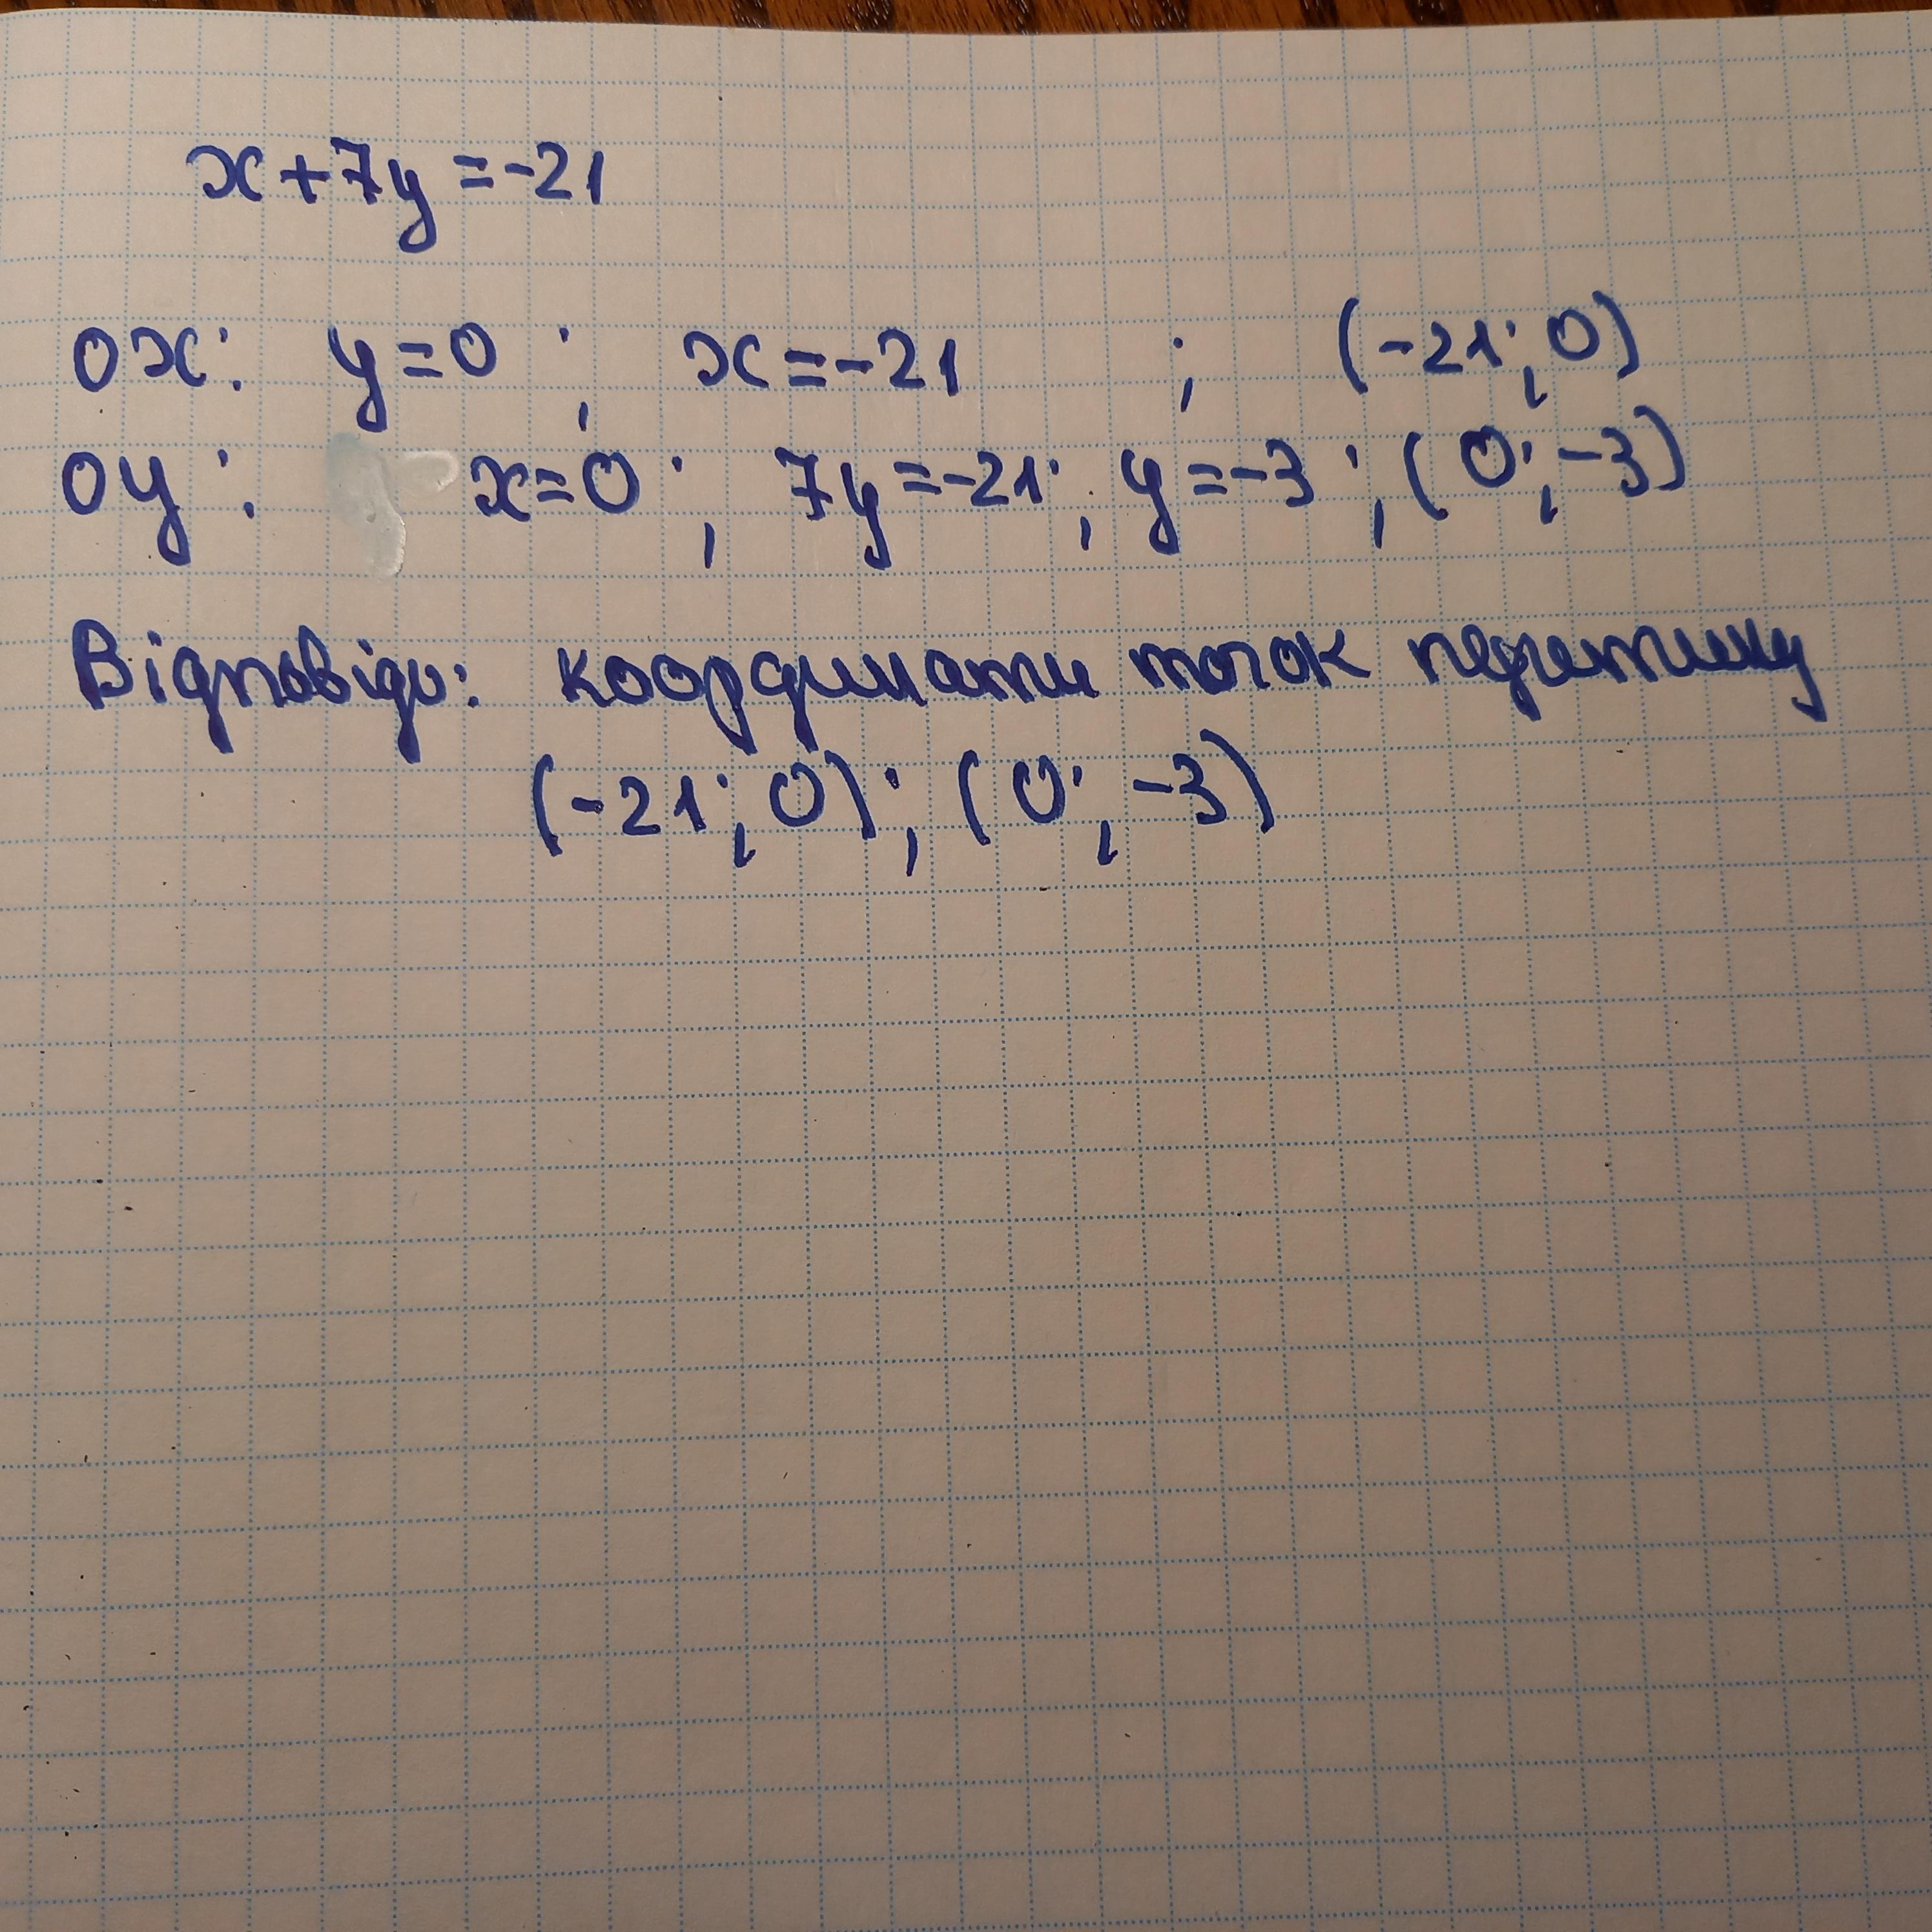 x+7y=-21
ох: y=0; x=-21; (-21; 0)
оу: x=0; 7y=-21; y=-3; (0; -3)
Відповідь: координати точок перетину
(-21; 0); (0; -3)